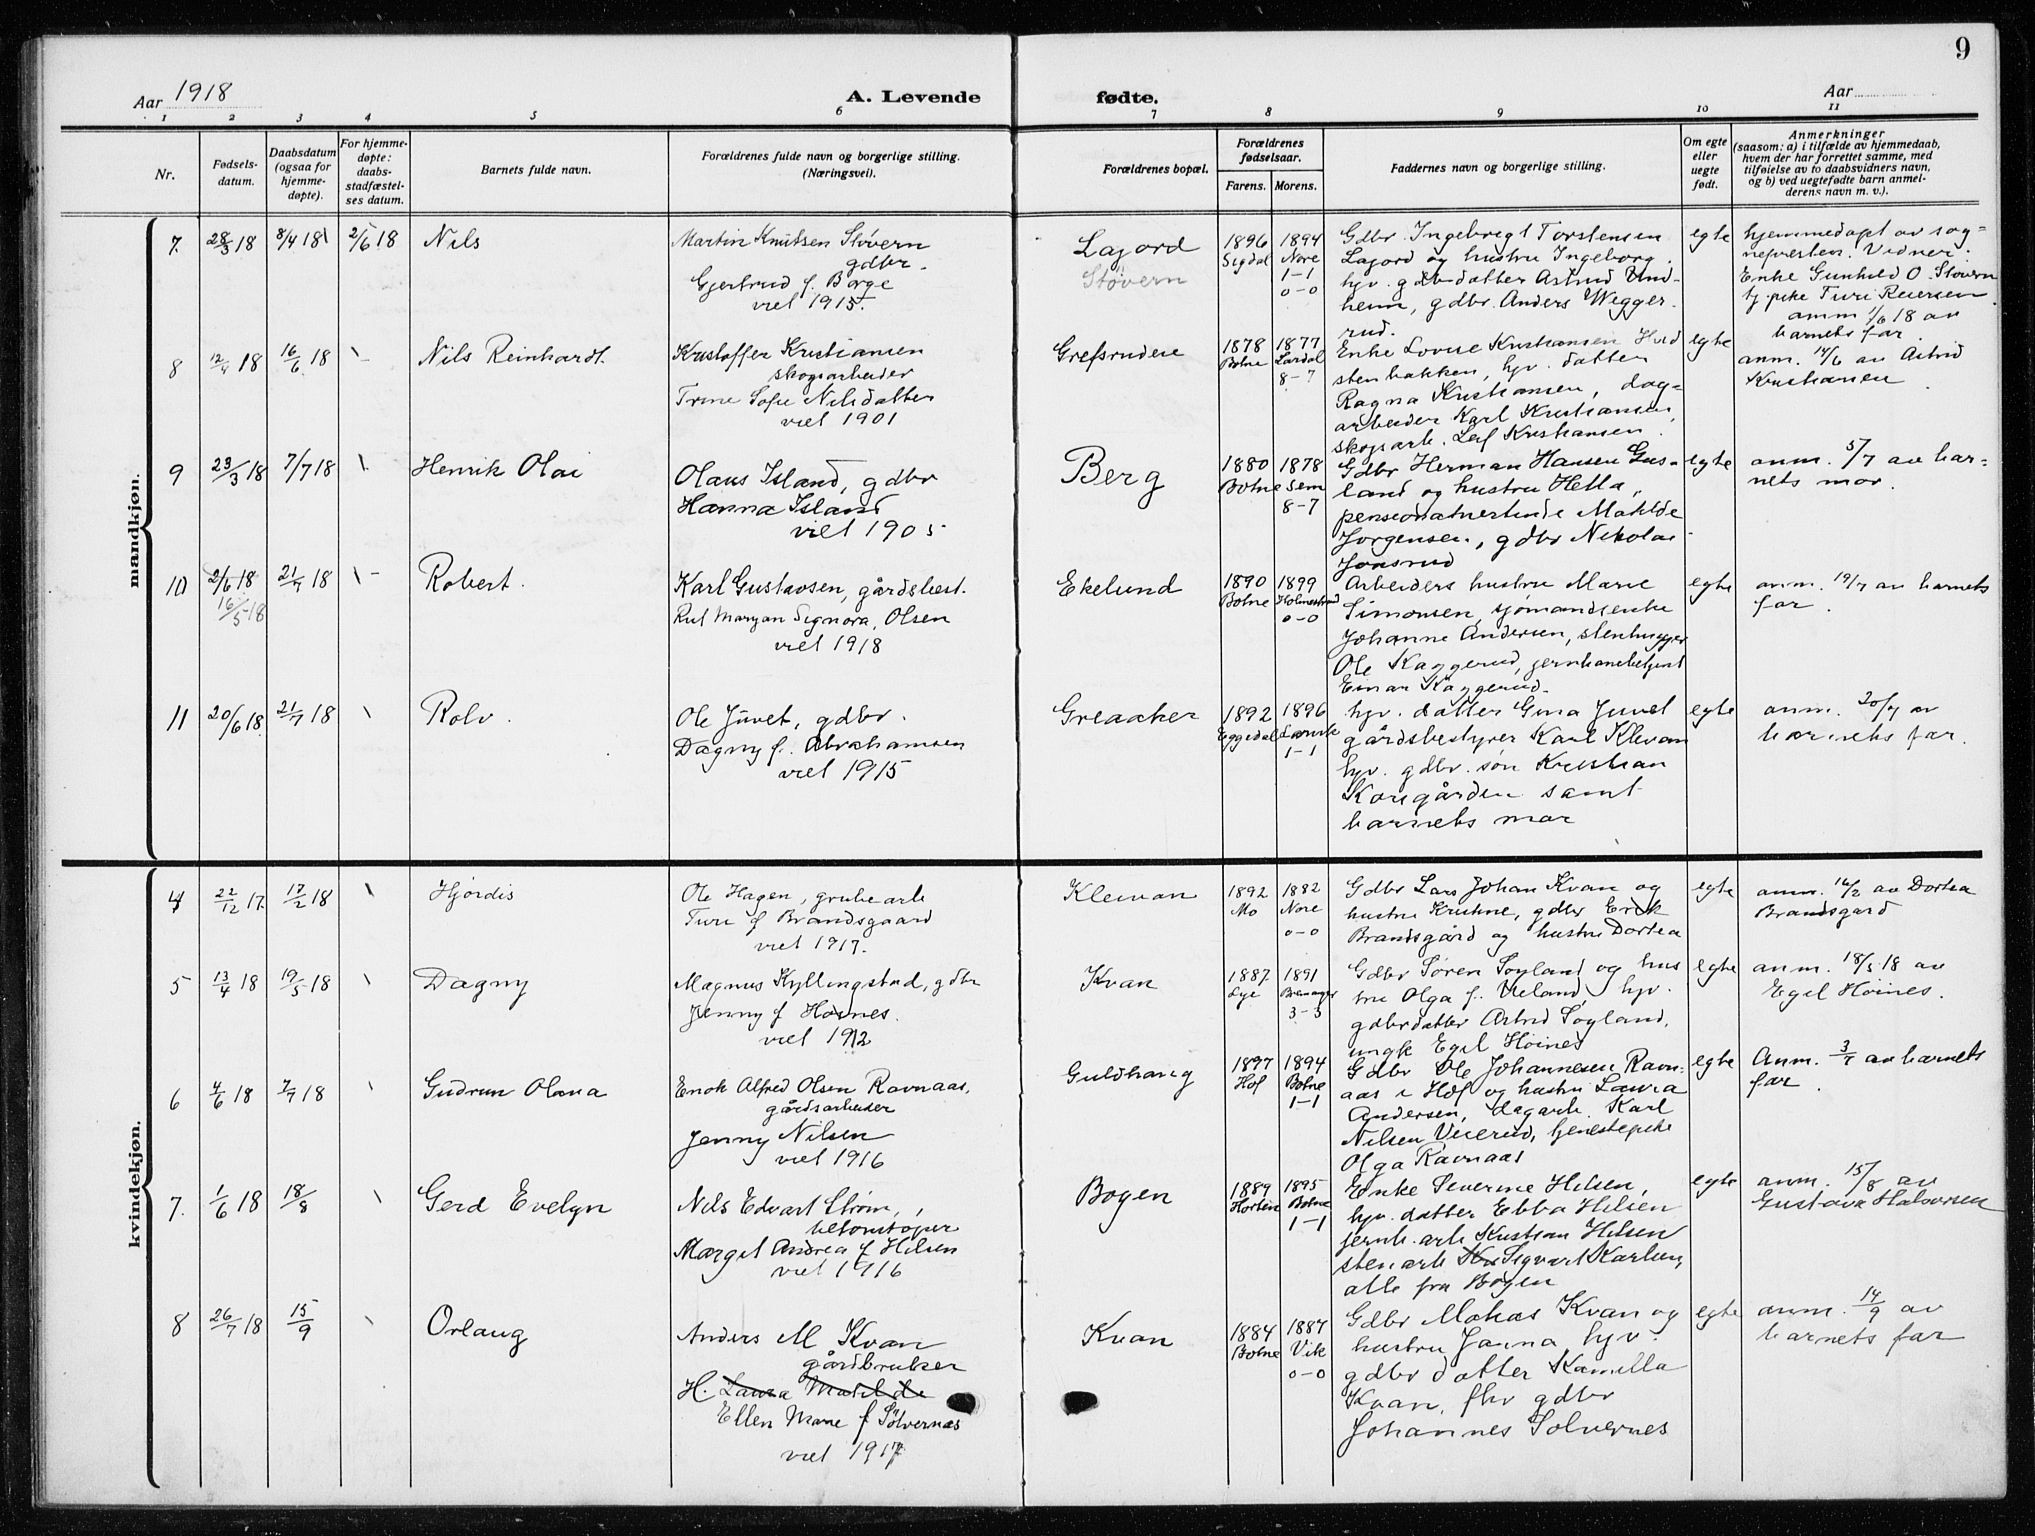 9
Aar 1918
A. Levende fødte.
Aar
1 2 3 4 5 6 7 8 9 10 11
Nr.
Fødsels-
datum.
Daabsdatum
(ogsaa for
hjemme-
døpte).
For hjemme-
døpte:
daabs-
stadfæstel-
ses datum.
Barnets fulde navn.
Forældrenes fulde navn og borgerlige stilling.
(Næringsvei).
Forældrenes bopæl.
Forældrenes
fødselsaar.
Farens. Morens.
Faddernes navn og borgerlige stilling.
Om egte
eller
uegte
født.
Anmerkninger
(saasom: a) i tilfælde av hjemmedaab,
hvem der har forrettet samme, med
tilføielse av to daabsvidners navn,
og b) ved uegtefødte barn anmel-
derens navn m. v.).
mandkjøn.
7. 28/3 18 8/4 18 2/6 18 Nils
Martin Knutsen Støvern
gdbr.
Gjertrud f. Borge
viet 1915.
Lajord
Støvern
1896
Sigdal
1894
Nore
1-1
0-0
Gdbr. Ingebregt Torstensen
Lajord og hustru Ingeborg.
hjv. gdbrdatter Astrid Und-
heim, gdbr. Anders Wegger-
rud.
egte
hjemmedøpt av sog-
nepresten. Vidner:
Enke Gunhild O. Støvern
tj. pike Turi Reiersen
anm 1/6 18 av
barnets far.
8 12/4 18 16/6 18 Nils Reinhardt.
Kristoffer Kristiansen
skogsarbeider
Trine Sofie Nilsdatter
viet 1901
Grefsrudeie
1878
Botne
1877
Lardal
8-7
Enke Lovise Kristiansen Hvid
stenbakken, hjv. datter
Ragna Kristiansen, dag-
arbeider Karl Kristiansen,
skogsarb. Leif Kristiansen.
egte
anm. 14/6 av Astrid
Kristiansen
9 23/3 18 7/7 18 Henrik Olai
Olaus Island, gdbr
Hanna Island
viet 1905
Berg
1880
Botne
1878
Sem
8-7
Gdbr Herman Hansen Gus-
land og hustru Hella,
pensionatvertinde Matilde
Jørgensen, gdbr Nikolai
Jonsrud
egte
anm. 5/7 av bar-
nets mor.
10 2/6 18
16/5 18
21/7 18 Robert.
Karl Gustavsen, gårdsbest.
Rut Maryan Signora, Olsen
viet 1918
Ekelund
1890
Botne
1899
Holmestrand
0-0
Arbeiders hustru Marie
Simonsen, sjømandsenke
Johanne Andersen, stenhugger
Ole Kaggerud, jernbanebetjent
Einar Kaggerud.
egte
anm. 19/7 av barnets
far.
11 20/6 18. 21/7 18 Rolv.
Ole Juvet, gdbr.
Dagny f. Abrahamsen
viet 1915
Greaaker
1892
Eggedal
1896
Larvik
1-1
hjv. datter Gina Juvet
gårdsbestyrer Karl Klevan
hjv. gdbr. søn Kristian
Korsgården samt
barnets mor
egte
anm. 20/7 av
barnets far.
kvindekjøn.
4 22/12 17. 17/2 18 Hjørdis
Ole Hagen, grubearb
Turi f Brandsgaard
viet 1917.
Kleivan
1892
Mo
1882
Nore
0-0
Gdbr Lars Johan Kvan og
hustru Kristine, gdbr Erik
Brandsgård og hustru Dortea
egte
anm. 16/2 av Dortea
Brandsgard
5 13/4 18 19/5 18 Dagny
Magnus Kyllingstad, gdbr
Jenny f Hoines.
viet 1912
Kvan
1887
Lye
1891
3-3
Gdbr Søren Soyland og hus
tru Olga f. Ueland, hjv.
gdbrdatter Astrid Soyland,
ungk Egil Høines
egte
anm. 18/5 18 av
Egil Høines.
6 4/6 18 7/7 18 Gudrun Olava
Enok Alfred Olsen Ravnaas,
gårdsarbeider
Jenny Nilsen
viet 1916
Guldhaug
1897
Hof
1894
Botne
1-1
Gdbr Ole Johannesen Ravn-
aas i Hof og hustru Laura
Andersen, dagarb. Karl
Nilsen Veierud, tjenestepike
Olga Ravnaas
egte
Anm. 3/7 av barnets
far.
7. 1/6 18 18/8 Gerd Evelyn
Nils Edvart Strøm,
betonstøper
Margit Andrea f Hilsen
viet 1916
Bogen
1889
Horten
1895
Botne
1-1
Enke Severine Hilsen,
hjv. datter Ebba Hilsen
jernb. arb Kristian Hilsen
stenarb Kri Sigvart Karlsen,
alle fra Bogen
egte
anm. 15/8 av
Gustava Halvorsen
8 26/7 18 15/9 Orlaug
Anders M Kvan
gårdbruker
H. Laura Matilde
Ellen Marie f Sölvernes
viet 1917
Kvan
1884
Botne
1887
Vik
0-0
Gdbr Mathias Kvan og
hustru Janna hjv.
gdbr datter Kamilla
Kvan, fhv gdbr
Johannes Solvernes
egte
anm. 14/9 av
barnets far